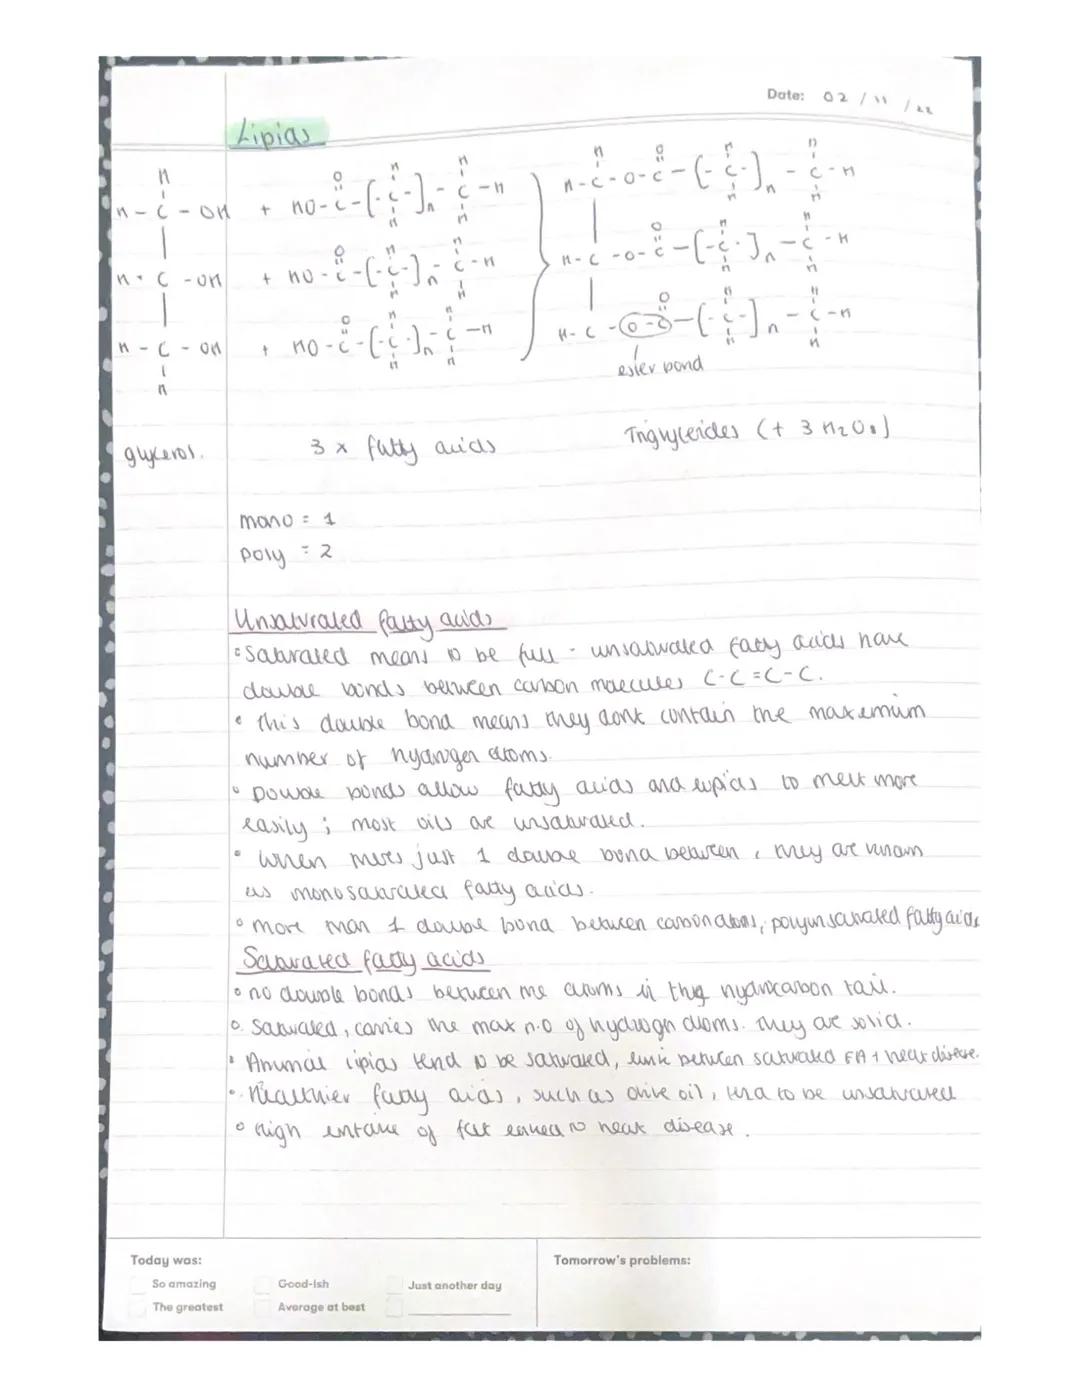 Date: 02/11/22
Lipids
H H H H O H H
H-C-OH + HO-C-[-C-]n-C-H H-C-O-C-[-C-]n-C-H
H-C-OH + HO-C-[-C-]n-C-H H-C-O-C-[-C-]n-C-H
H-C-OH + HO-C-[-C-]n-C-H H-C-O-C-[-C-]n-C-H
H
ester bond
glycerol. 3 x fatty acids Triglycerides (+ 3 H2Os)
mono = 1
poly = 2
Unsaturated fatty acids
• Saturated means to be full - unsaturated fatty acids have
double bonds between carbon molecules C-C=C-C.
• This double bond means they dont contain the maxemum
number of hydrogen atoms.
• Double bonds allow fatty acids and lipids to melt more
easily ; most oils are unsaturated.
• When theres just 1 double bond between , they are known
as monosaturated fatty acids.
• more than 1 double bond between carbon atoms, polyunsaturated fatty acids
Saturated fatty acids
• no double bonds between the atoms in the hydrocarbon tail.
• Saturated, carries the max n.o of hydrogn atoms. They are solid.
• Animal lipids tend to be saturated, link between saturated FA + heart disease.
• Healthier fatty acids, such as olive oil, tend to be unsaturated
• High intake of fat linked to heart disease.
Today was:
So amazing Good-ish Just another day
The greatest Average at best
Tomorrow's problems: